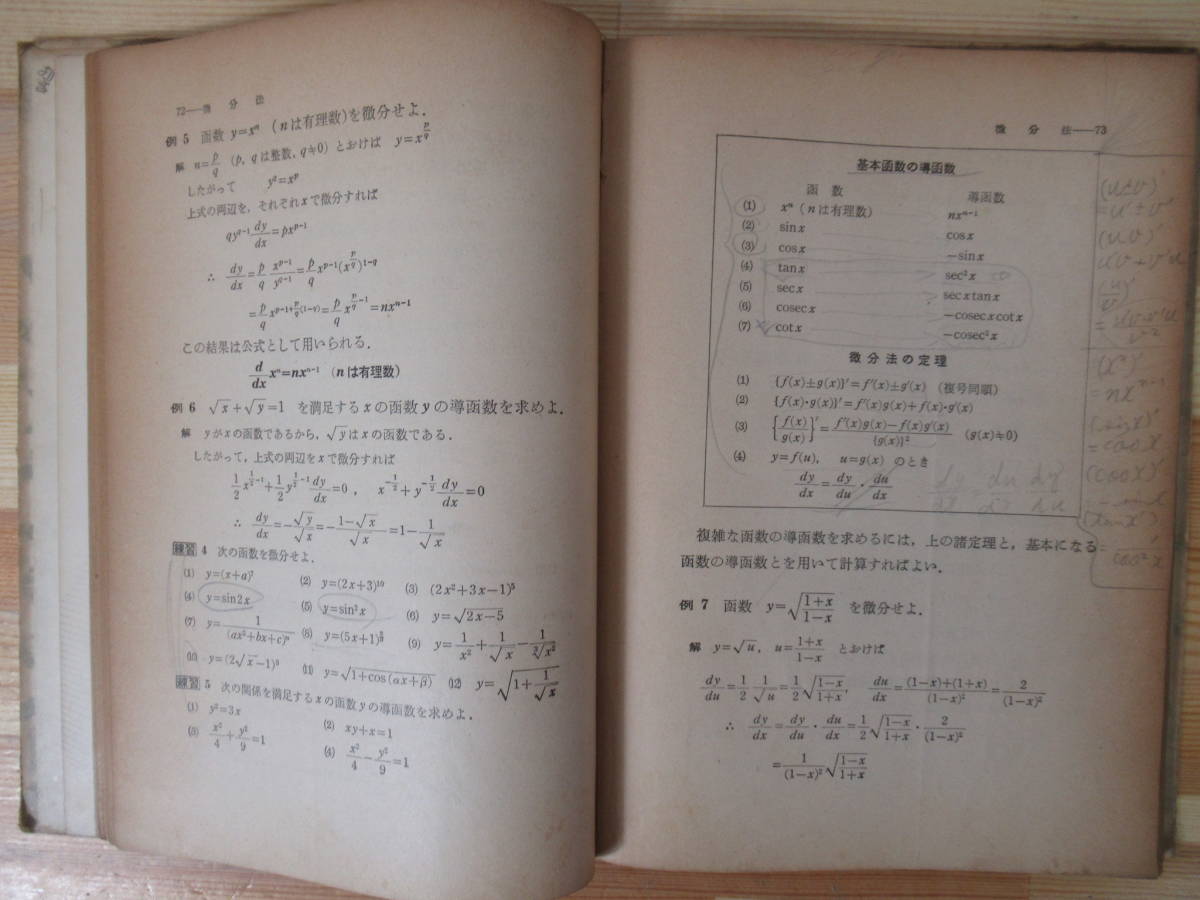 72——微分法
例5 函数 y=xⁿ (nは有理数)を微分せよ.
解 n=p/q (p, qは整数, q≠0) とおけば y=x^(p/q)
したがって y^q=x^p
上式の両辺を, それぞれxで微分すれば
qy^(q-1) dy/dx=px^(p-1)
∴ dy/dx=p/q x^(p-1)/y^(q-1)=p/q x^(p-1)(x^(p/q))^(1-q)
=p/q x^(p-1+p/q(1-q))=p/q x^(p/q-1)=nx^(n-1)
この結果は公式として用いられる.
d/dx xⁿ=nx^(n-1) (nは有理数)
例6 √x+√y=1 を満足するxの函数yの導函数を求めよ.
解 yがxの函数であるから, √yはxの函数である.
したがって, 上式の両辺をxで微分すれば
1/2 x^(1/2-1)+1/2 y^(1/2-1) dy/dx=0, x^(-1/2)+y^(-1/2) dy/dx=0
∴ dy/dx=-√y/√x=-(1-√x)/√x=1-1/√x
練習4 次の函数を微分せよ.
(1) y=(x+a)⁷ (2) y=(2x+3)¹⁰ (3) (2x²+3x-1)⁵
(4) y=sin2x (5) y=sin²x (6) y=√(2x-5)
(7) y=1/(ax²+bx+c)ⁿ (8) y=(5x+1) (9) y=1/x²+1/√x-1/∛x²
(10) y=(2√x-1)⁹ (11) y=√(1+cos(αx+β)) (12) y=√(1+1/√x)
練習5 次の関係を満足するxの函数yの導函数を求めよ.
(1) y²=3x (2) xy+x=1
(3) x²/4+y²/9=1 (4) x²/4-y²/9=1
微分法——73
基本函数の導函数
函数 導函数
(1) xⁿ (nは有理数) nx^(n-1)
(2) sinx cosx
(3) cosx -sinx
(4) tanx sec²x
(5) secx secxtanx
(6) cosecx -cosecxcotx
(7) cotx -cosec²x
微分法の定理
(1) {f(x)±g(x)}'=f'(x)±g'(x) (複号同順)
(2) {f(x)・g(x)}'=f'(x)g(x)+f(x)・g'(x)
(3) {f(x)/g(x)}'=(f'(x)g(x)-f(x)g'(x))/{g(x)}² (g(x)≠0)
(4) y=f(u), u=g(x) のとき
dy/dx=dy/du・du/dx
複雑な函数の導函数を求めるには, 上の諸定理と, 基本になる
函数の導函数とを用いて計算すればよい.
例7 函数 y=√((1+x)/(1-x)) を微分せよ.
解 y=√u, u=(1+x)/(1-x) とおけば
dy/du=1/2 1/√u=1/2√((1-x)/(1+x)), du/dx=((1-x)+(1+x))/(1-x)²=2/(1-x)²
∴ dy/dx=dy/du・du/dx=1/2√((1-x)/(1+x))・2/(1-x)²
=1/(1-x)² √((1-x)/(1+x))
(u±v)'
=u'±v'
(uv)'
u'v+v'u
(u/v)'
(xⁿ)'
=nx^(n-1)
(sinx)'
=cosx
(cosx)'
(tanx)'
cos²x